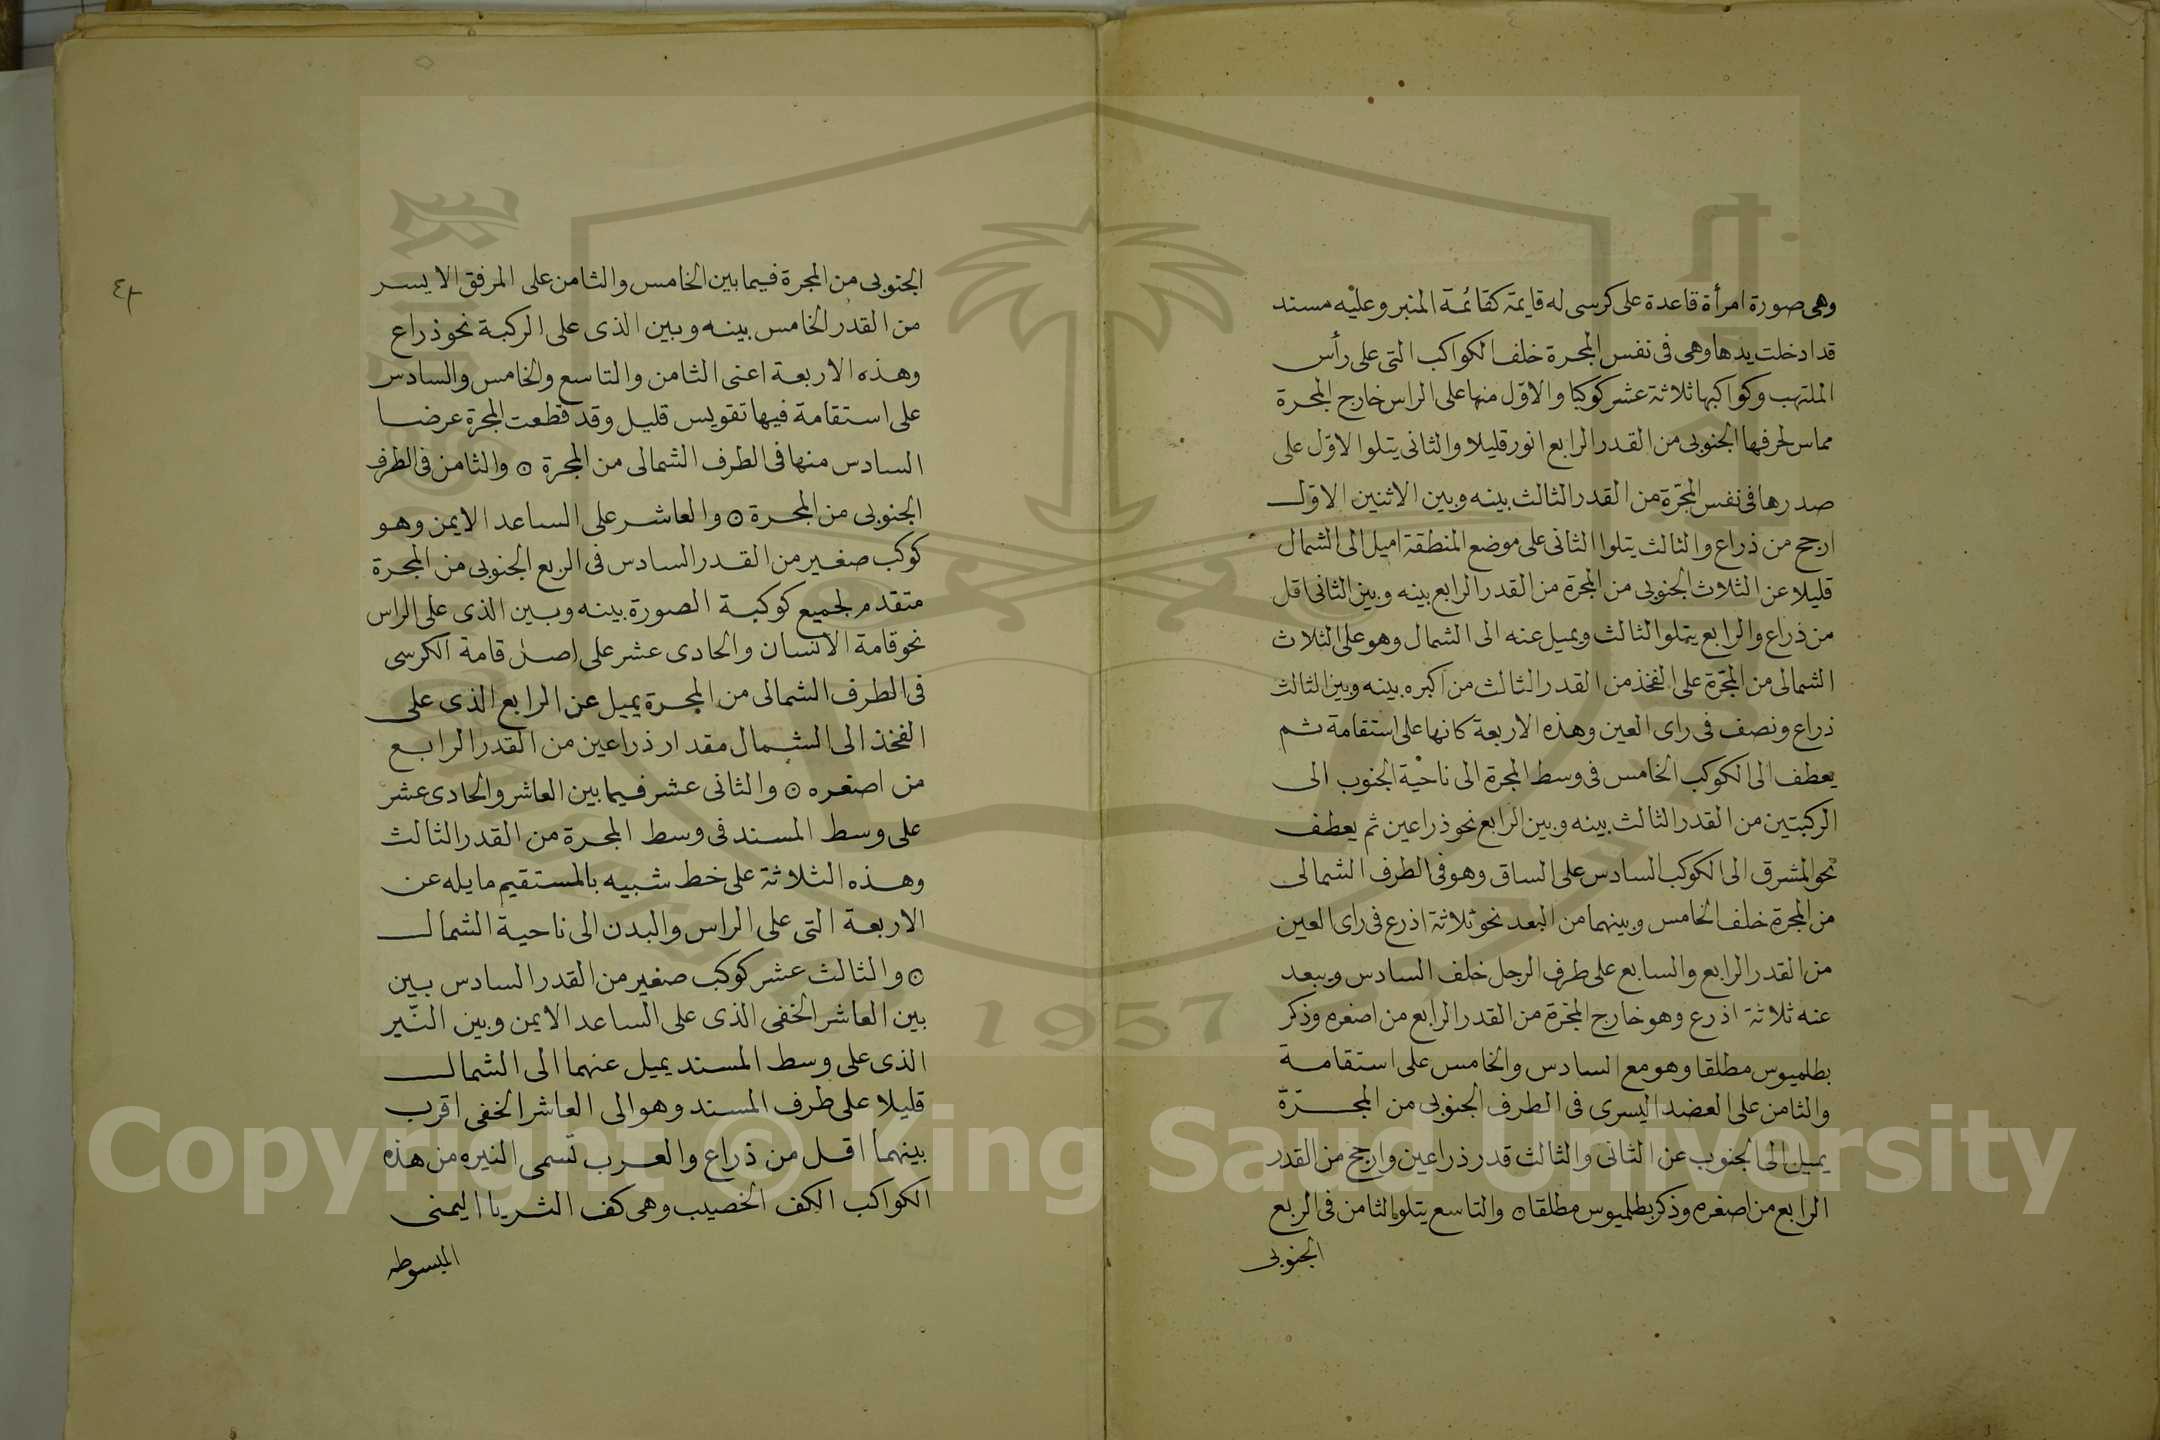 وهى صورة امرأة قاعدة على كرسى له قايمة كقائمة المنبر وعليه مسند
قد ادخلت يدها وهى فى نفس المجرة خلف الكواكب التى على رأس
الملتهب وكواكبها ثلاثة عشر كوكبا والاوّل منها على الراس خارج المجرة
مماس لحرفها الجنوبى من القدر الرابع انور قليلا والثانى يتلوا الاوّل على
صدرها فى نفس المجرّة من القدر الثالث بينه وبين الاثنين الاوّل
ارجح من ذراع والثالث يتلوا الثانى على موضع المنطقة اميل الى الشمال
قليلا عن الثلاث الجنوبى من المجرة من القدر الرابع بينه وبين الثانى اقل
من ذراع والرابع يتلوا الثالث ويميل عنه الى الشمال وهو على الثلاث
الشمالى من المجرّة على الفخذ من القدر الثالث من اكبره بينه وبين الثالث
ذراع ونصف فى راى العين وهذه الاربعة كانها على استقامة ثم
يعطف الى الكوكب الخامس فى وسط المجرة الى ناحية الجنوب الى
الركبتين من القدر الثالث بينه وبين الرابع نحو ذراعين ثم يعطف
نحو المشرق الى الكوكب السادس على الساق وهو فى الطرف الشمالى
من المجرة خلف الخامس وبينهما من البعد نحو ثلاثة اذرع فى راى العين
من القدر الرابع والسابع على طرف الرجل خلف السادس ويبعد
عنه ثلاثة اذرع وهو خارج المجرة من القدر الرابع من اصغره وذكر
بطلميوس مطلقا وهو مع السادس والخامس على استقامة
والثامن على العضد اليسرى فى الطرف الجنوبى من المجرّة
يميل الى الجنوب عن الثانى والثالث قدر ذراعين وارجح من القدر
الرابع من اصغره وذكر بطلميوس مطلقا ⊙ والتاسع يتلوا الثامن فى الربع
الجنوبى
٤٣
الجنوبى من المجرة فيما بين الخامس والثامن على المرفق الايسر
من القدر الخامس بينه وبين الذى على الركبة نحو ذراع
وهذه الاربعة اعنى الثامن والتاسع والخامس والسادس
على استقامة فيها تقويس قليل وقد قطعت المجرة عرضا
السادس منها فى الطرف الشمالى من المجرة ⊙ والثامن فى الطرف
الجنوبى من المجرة ⊙ والعاشر على الساعد الايمن وهو
كوكب صغير من القدر السادس فى الربع الجنوبى من المجرة
متقدم لجميع كوكبة الصورة بينه وبين الذى على الراس
نحو قامة الانسان والحادى عشر على اصل قامة الكرسى
فى الطرف الشمالى من المجرة يميل عن الرابع الذى على
الفخذ الى الشمال مقدار ذراعين من القدر الرابع
من اصغره ⊙ والثانى عشر فيما بين العاشر والحادى عشر
على وسط المسند فى وسط المجرة من القدر الثالث
وهذه الثلاثة على خط شبيه بالمستقيم مايله عن
الاربعة التى على الراس والبدن الى ناحية الشمال
⊙ والثالث عشر كوكب صغير من القدر السادس بين
بين العاشر الخفى الذى على الساعد الايمن وبين النّير
الذى على وسط المسند يميل عنهما الى الشمال
قليلا على طرف المسند وهو الى العاشر الخفى اقرب
بينهما اقل من ذراع والعرب تسمى النيره من هذه
الكواكب الكف الخضيب وهى كف الثريا اليمنى
المبسوطه
1957
Copyright © King Saud University